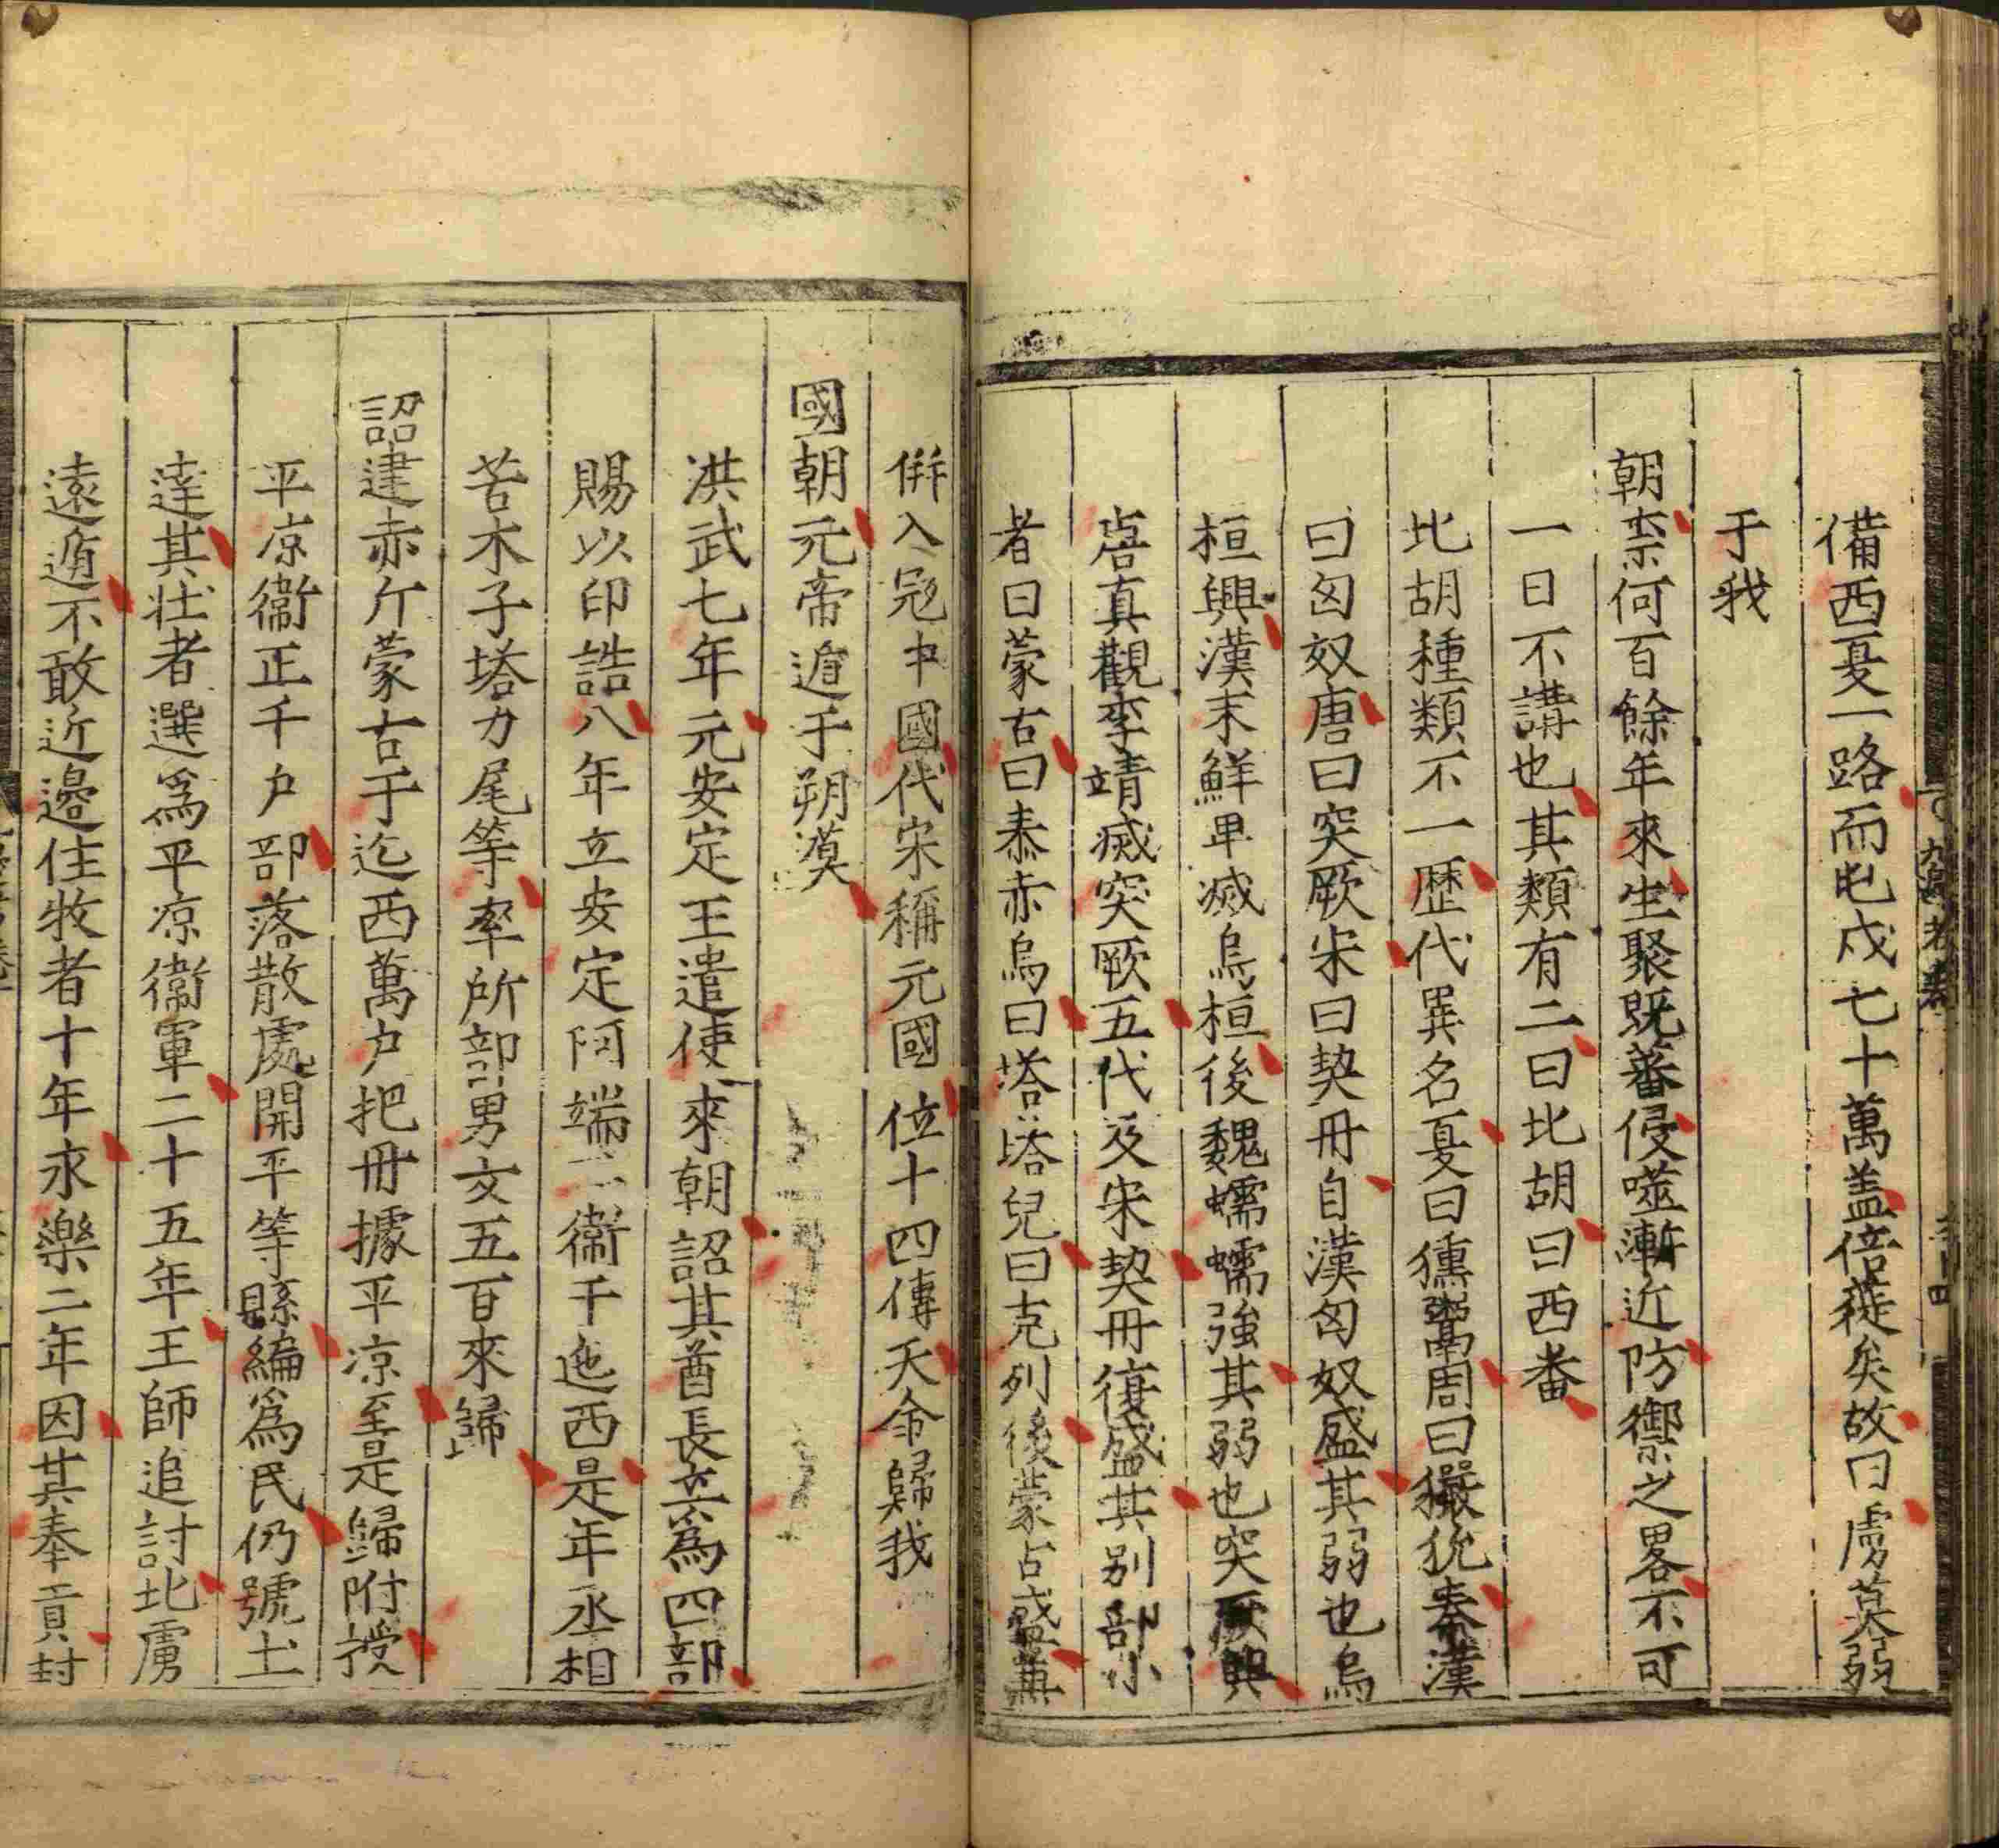 備西夏一路而屯戍七十萬盖倍蓰矣故曰虜莫弱
于我
朝柰何百餘年來生聚既蕃侵噬漸近防禦之畧不可
一日不講也其類有二曰北胡曰西畨
北胡種類不一歷代異名夏曰獯鬻周曰玁狁秦漢
曰匈奴唐曰突厥宋曰契丹自漢匈奴盛其弱也烏
桓興漢末鮮卑滅烏桓後魏蠕蠕强其弱也突厥興
唐真觀李靖滅突厥五代及宋契丹復盛其别部小
者曰蒙古曰泰赤烏曰塔塔兒曰克列後蒙古盛兼
併入冦中國代宋稱元國位十四傳天命歸我
國朝元帝遁于朔漠
洪武七年元安定王遣使來朝詔其酋長立爲四部
賜以印誥八年立安定阿端二衞千迤西是年丞相
苦木子塔力尾等率所部男女五百來歸
詔建赤斤蒙古于迄西萬户把丹據平凉至是歸附授
平凉衞正千户部落散處開平等縣編爲民仍號土
達其壯者選爲平凉衞軍二十五年王師追討北虜
遠遁不敢近邊住牧者十年永樂二年因其奉貢封